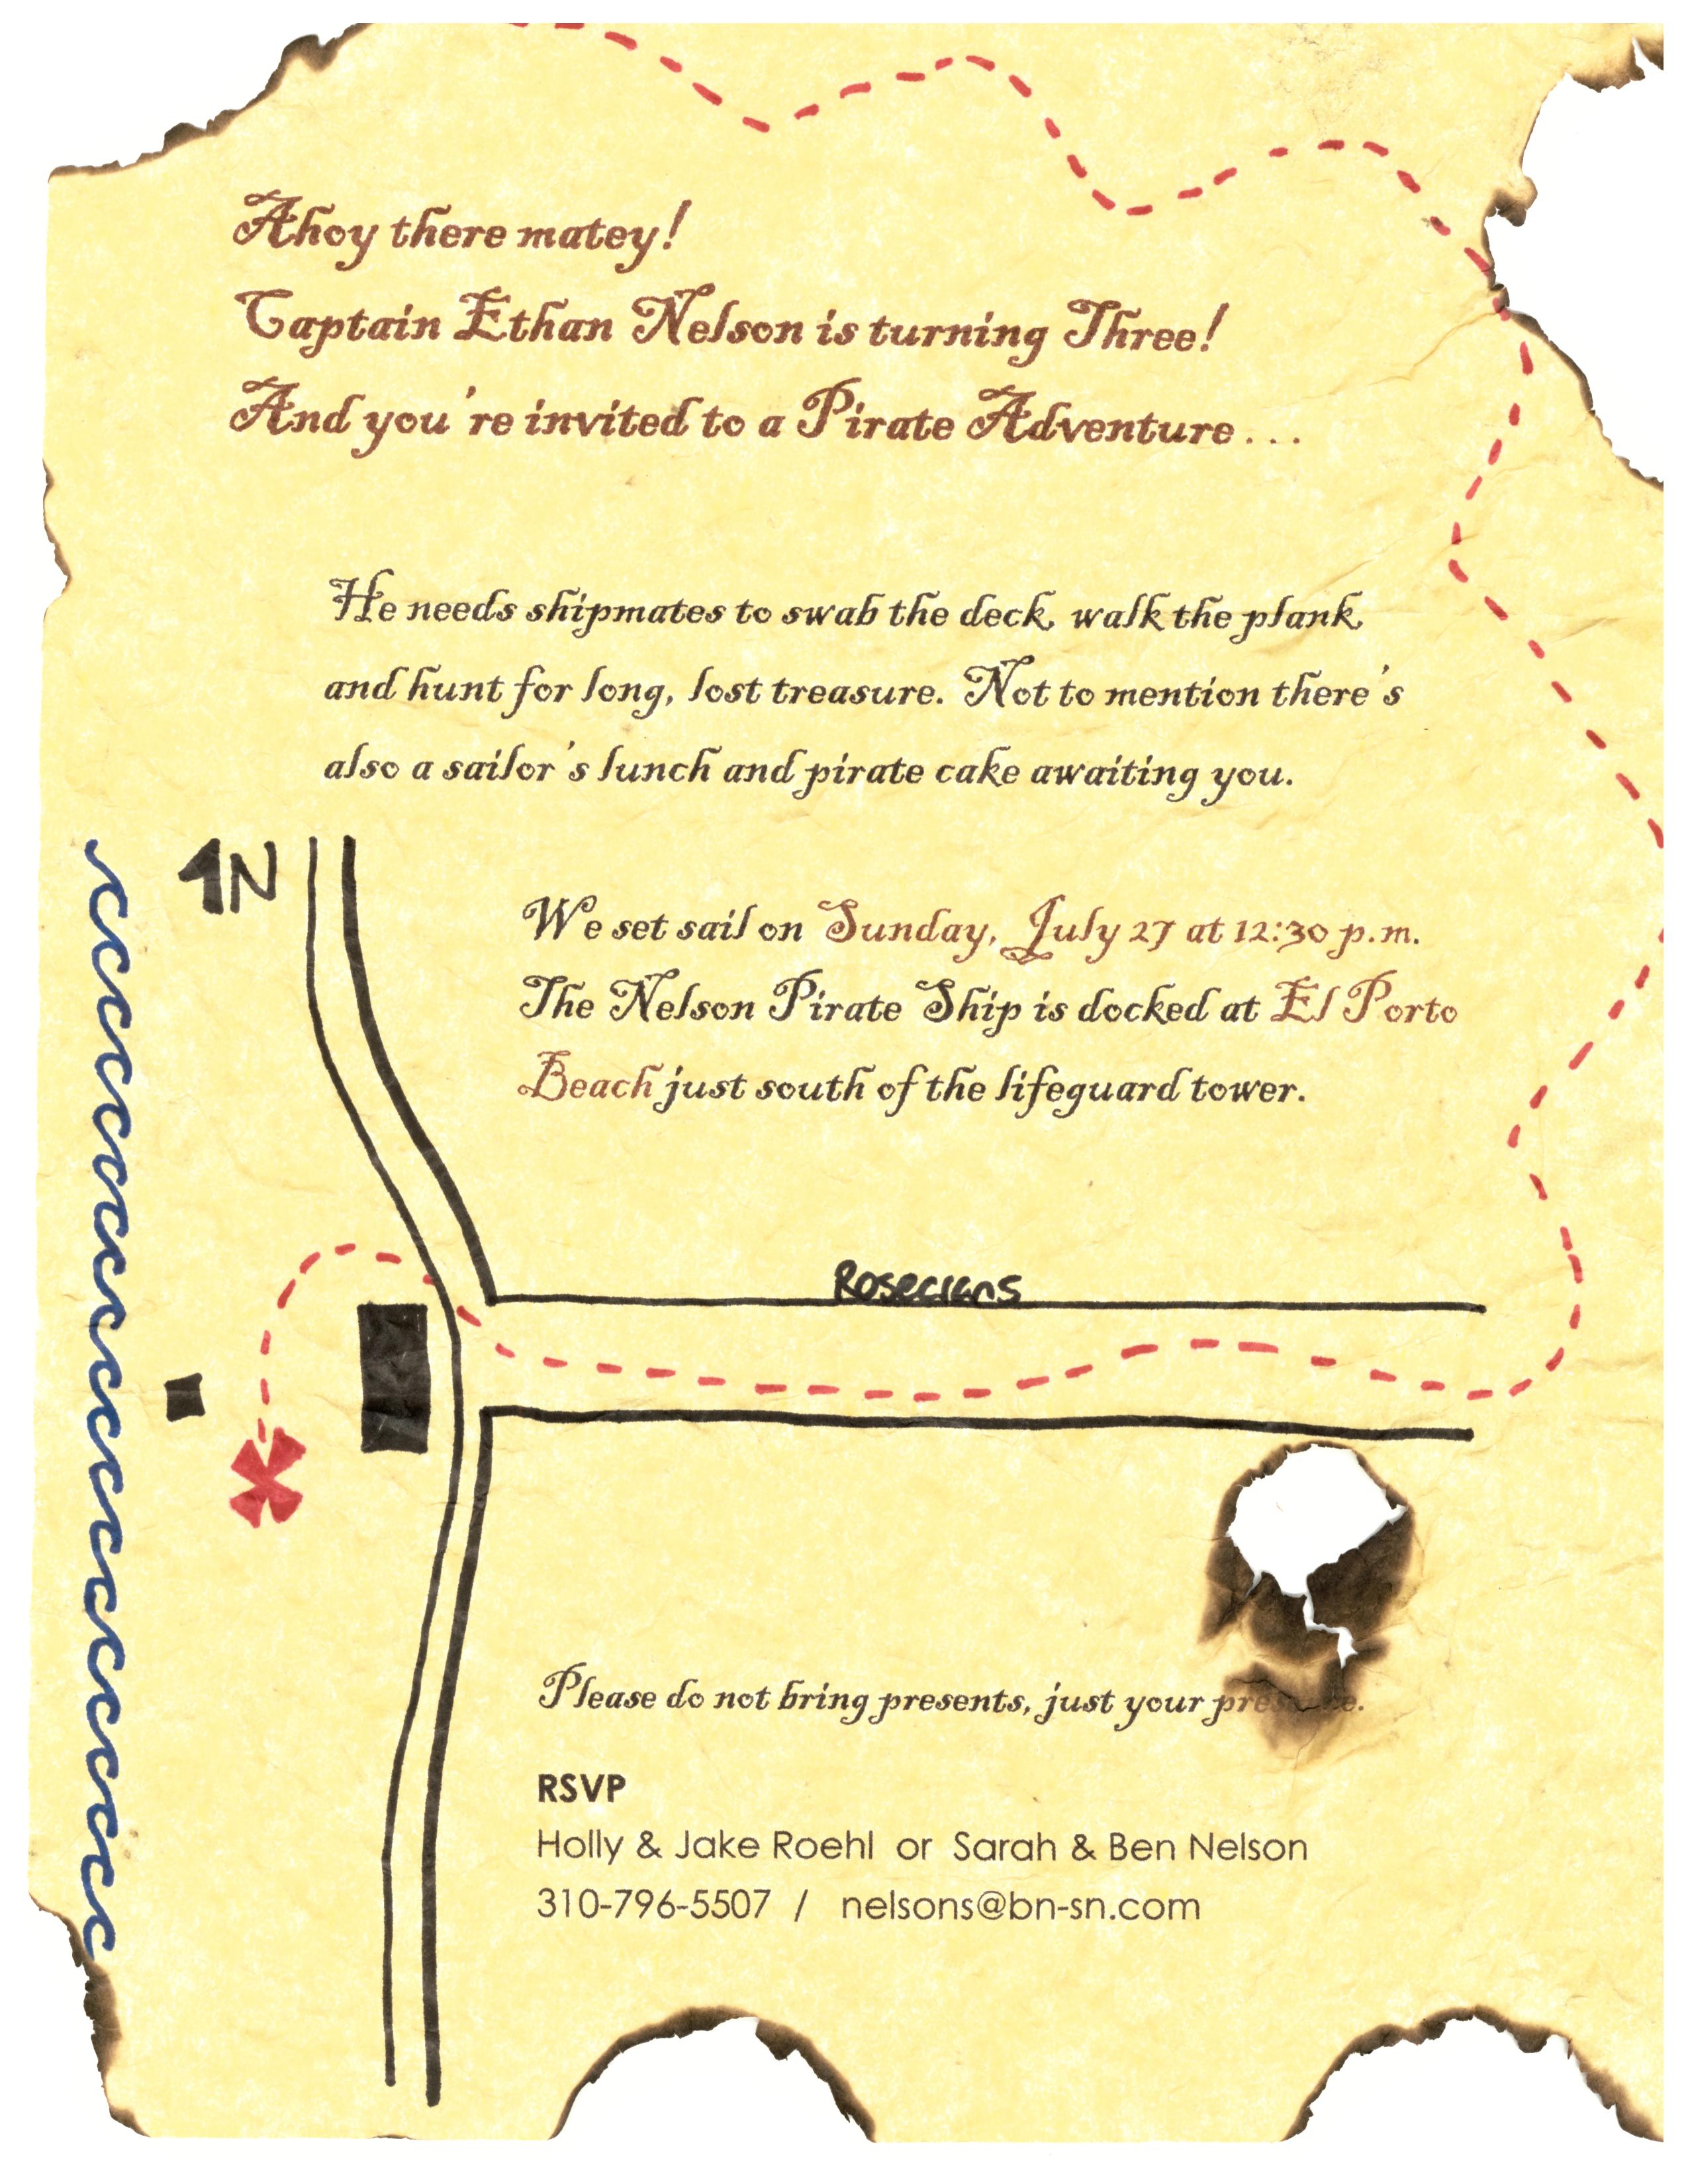 Ahoy there matey!
Captain Ethan Nelson is turning Three!
And you're invited to a Pirate Adventure...
He needs shipmates to swab the deck, walk the plank,
and hunt for long, lost treasure. Not to mention there's
also a sailor's lunch and pirate cake awaiting you.
N
We set sail on Sunday, July 27 at 12:30 p.m.
The Nelson Pirate Ship is docked at El Porto
Beach just south of the lifeguard tower.
Rosecrans
Please do not bring presents, just your
RSVP
Holly & Jake Roehl or Sarah & Ben Nelson
310-796-5507 / nelsons@bn-sn.com